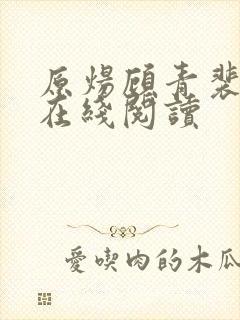 原煬顧青裴
在綫閱讀
愛喫肉的木瓜